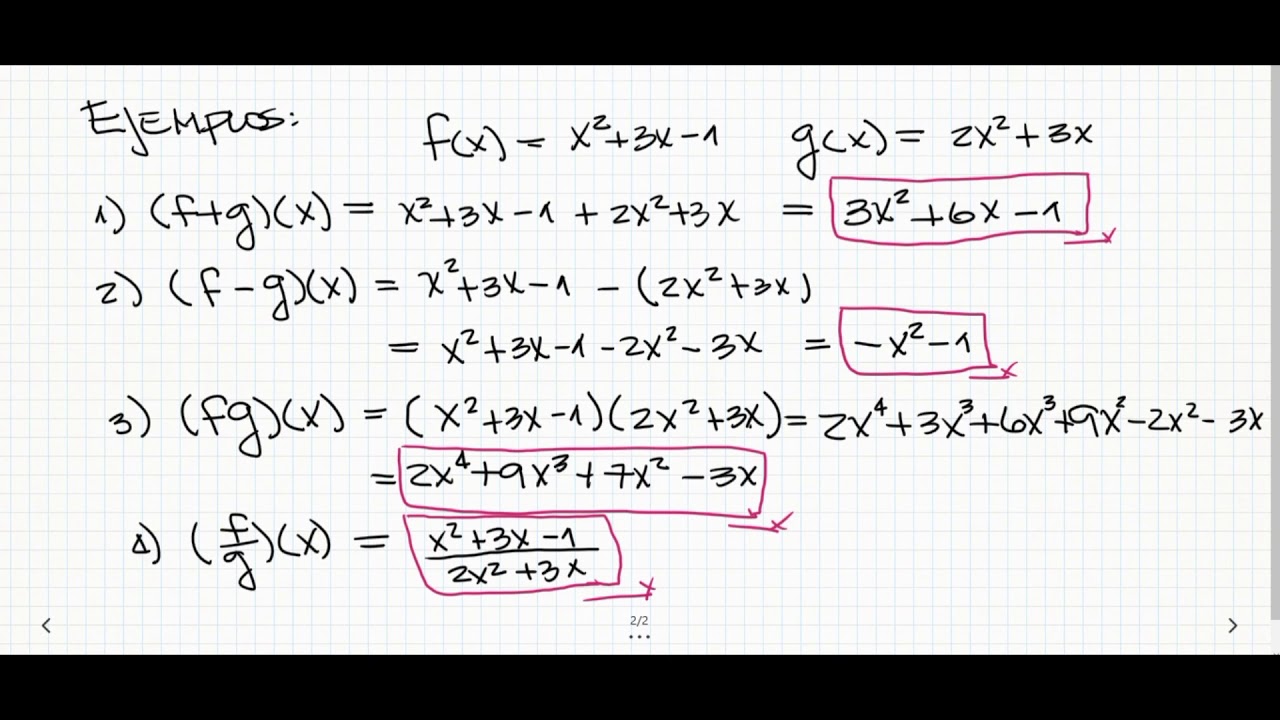 Ejemplos: f(x) = x²+3x-1 g(x) = 2x²+3x
1) (f+g)(x) = x²+3x-1+2x²+3x = 3x²+6x-1
2) (f-g)(x) = x²+3x-1 - (2x²+3x)
= x²+3x-1-2x²-3x = -x²-1
3) (fg)(x) = (x²+3x-1)(2x²+3x) = 2x⁴+3x³+6x³+9x²-2x²-3x
= 2x⁴+9x³+7x²-3x
4) (f/g)(x) = (x²+3x-1)/(2x²+3x)
2/2